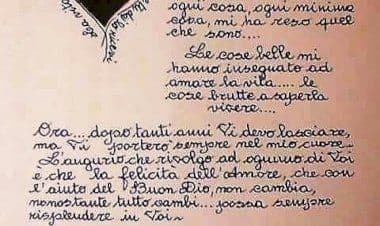 ogni cosa, ogni minima
cosa, mi ha reso quel
che sono....
Le cose belle mi
hanno insegnato ad
amare la vita.... le
cose brutte a saperla
vivere....
Ora... dopo tanti anni Vi devo lasciare,
ma Vi porterò sempre nel mio cuore...
L'augurio che rivolgo ad ognuno di Voi
è che la felicità dell'Amore, che con
l'aiuto del Buon Dio, non cambia,
nonostante tutto cambi... possa sempre
risplendere in Voi~